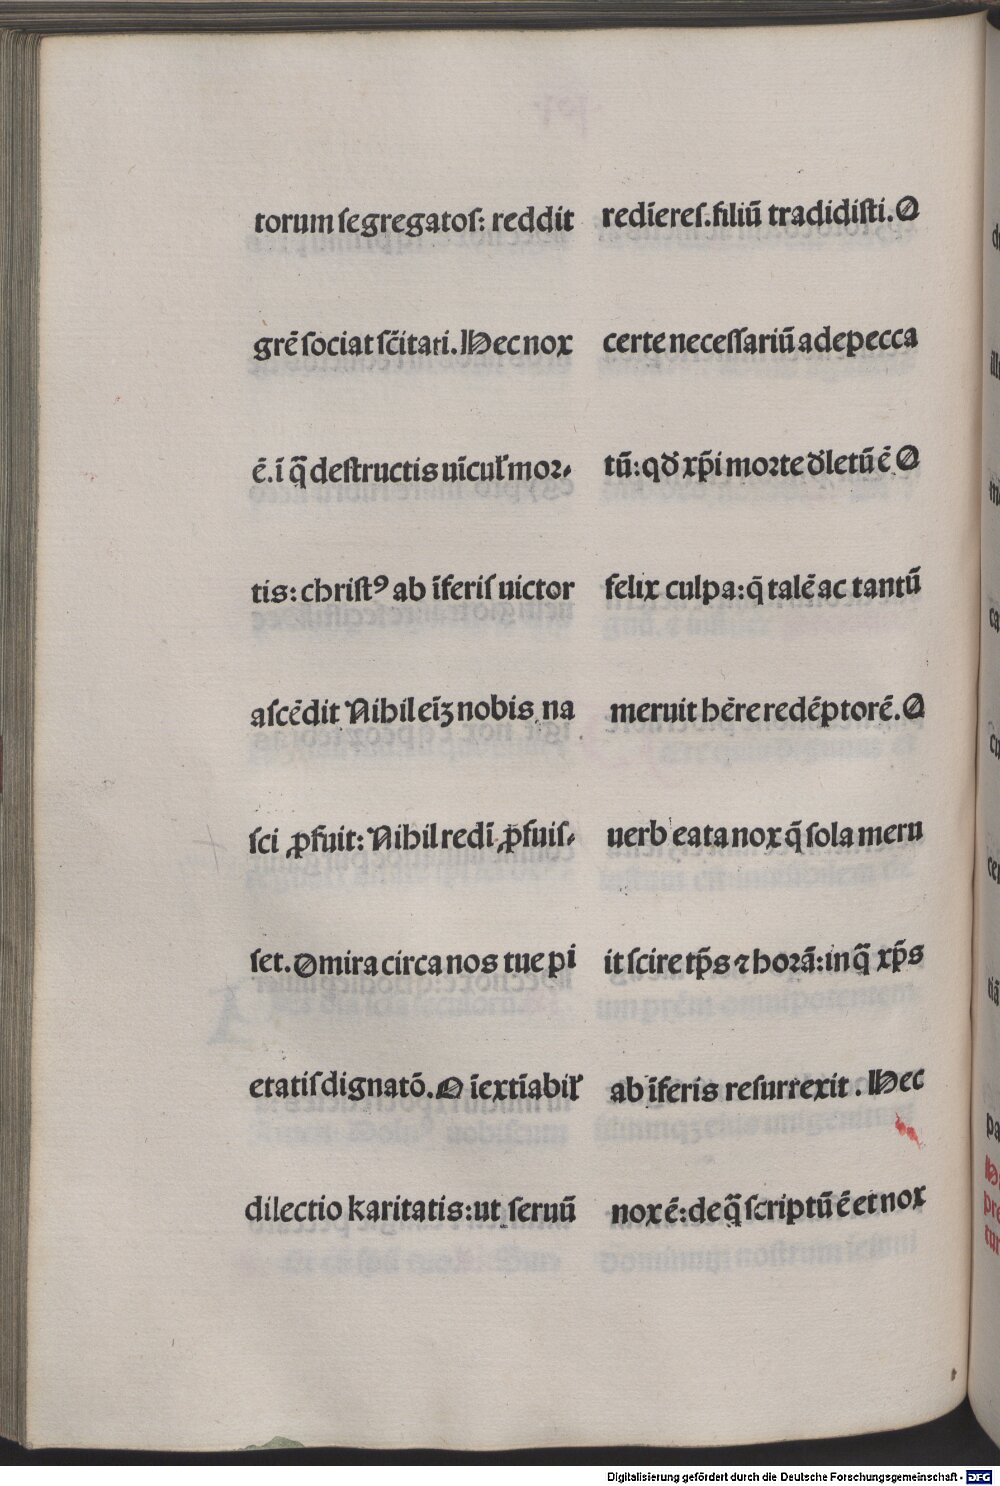 torum ſegregatoſ: reddit
grē ſociat ſc̄itati. Hec nox
ē. ī q̄ deſtructis uīcul' mor-
tis: chriſtꝰ ab īferiſ uictor
aſcēdit Nihil eīꝫ nobis na
ſci ꝓfuit: Nihil redī ꝓfuiſ-
ſet. O mira circa nos tue pi
etatiſ dignatō. O īextīabil'
dilectio karitatis: ut ſeruū
redīereſ. filiū tradidiſti. O
certe neceſſariū ade pecca
tū: qđ xp̄i moꝛte đletū ē O
felix culpa: q̄ talē ac tantū
meruit hēre redēptorē. O
uerb eata nox q̄ ſola meru
it ſcire tp̄s ⁊ hoꝛā: in q̄ xp̄s
ab īferis reſurrexit. Hec
nox ē: de q̄ ſcriptū ē et nox
Digitalisierung gefördert durch die Deutsche Forschungsgemeinschaft - DFG